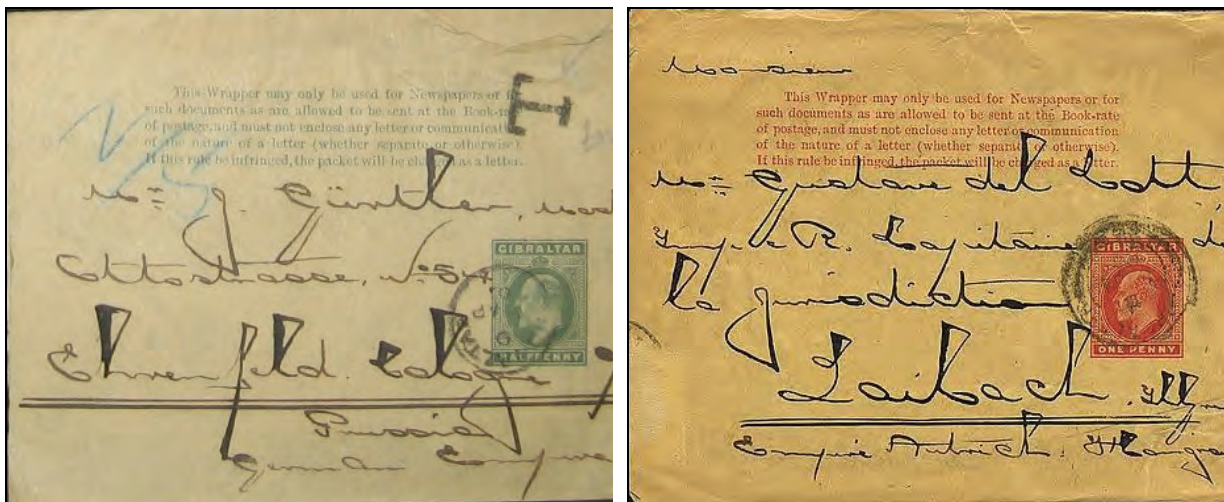 This Wrapper may only be used for Newspapers or for
such documents as are allowed to be sent at the Book-rate
of postage, and must not enclose any letter or communication
of the nature of a letter (whether separate or otherwise).
If this rule be infringed, the packet will be charged as a letter.
T
Mr. J. Güntler,
Ottostrasse, No. 54
GIBRALTAR
HALFPENNY
Ehrenfeld. Cologne
Prussia
German Empire
Monsieur
This Wrapper may only be used for Newspapers or for
such documents as are allowed to be sent at the Book-rate
of postage, and must not enclose any letter or communication
of the nature of a letter (whether separate or otherwise).
If this rule be infringed, the packet will be charged as a letter.
Mr. Gustave del Cott
R. Capitaine
la jurisdiction
GIBRALTAR
ONE PENNY
Laibach.
Empire Autrich.